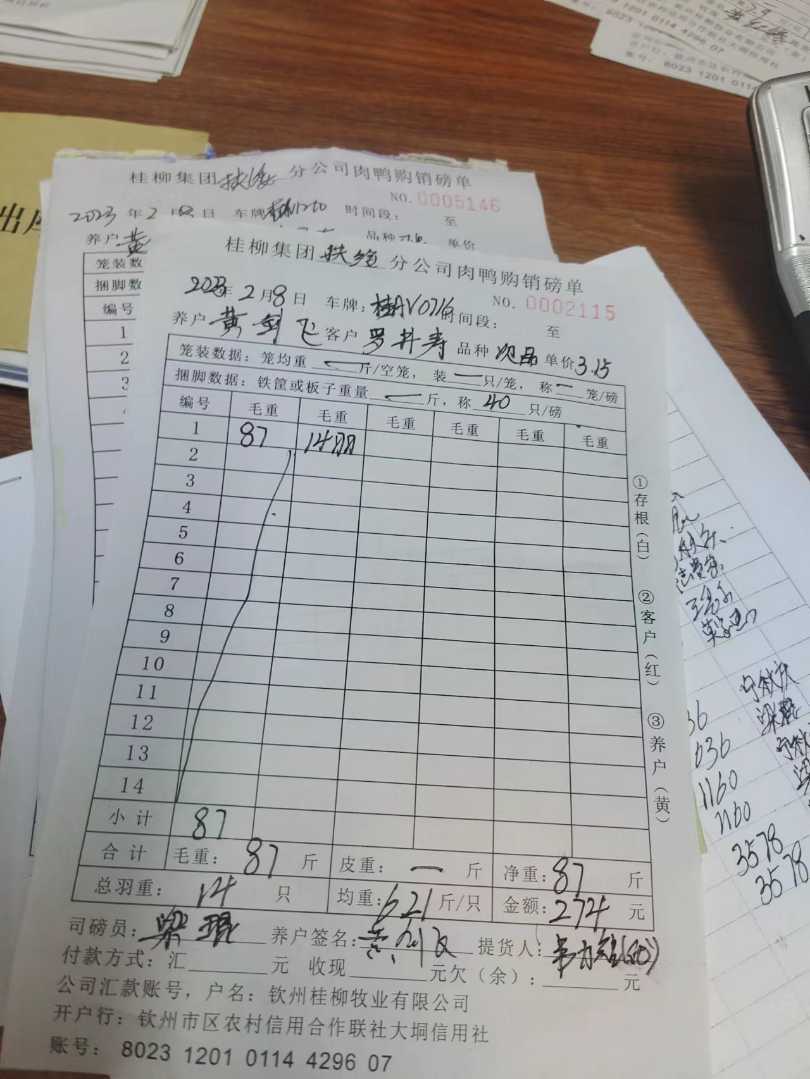 8023 1201 0114 4296 07
桂柳集团 扶绥 分公司肉鸭购销磅单
NO. 0005146
2023年2月8日 车牌: 时间段: 至
养户 黄 品种 单价
笼装数
捆脚数
编号
1
2
3
桂柳集团 扶绥 分公司肉鸭购销磅单
NO. 0002115
2023年2月8日 车牌:桂AV0716 时间段: 至
养户 黄剑飞 客户 罗井寿 品种 次品 单价3.15
笼装数据:笼均重 一 斤/空笼,装 一 只/笼,称 一 笼/磅
捆脚数据:铁筐或板子重量 一 斤,称 40 只/磅
编号 毛重 毛重 毛重 毛重 毛重 毛重
1 87 14
2
3
4
5
6
7
8
9
10
11
12
13
14
小计 87
合计 毛重:87 斤 皮重:一 斤 净重:87 斤
总羽重:14 只 均重:6.21 斤/只 金额:274 元
司磅员:梁琨 养户签名:黄剑飞 提货人:
付款方式:汇 元 收现 元欠(余): 元
公司汇款账号,户名:钦州桂柳牧业有限公司
开户行:钦州市区农村信用合作联社大垌信用社
账号: 8023 1201 0114 4296 07
①存根(白) ②客户(红) ③养户(黄)
36
636
1160
1160
3578
3578